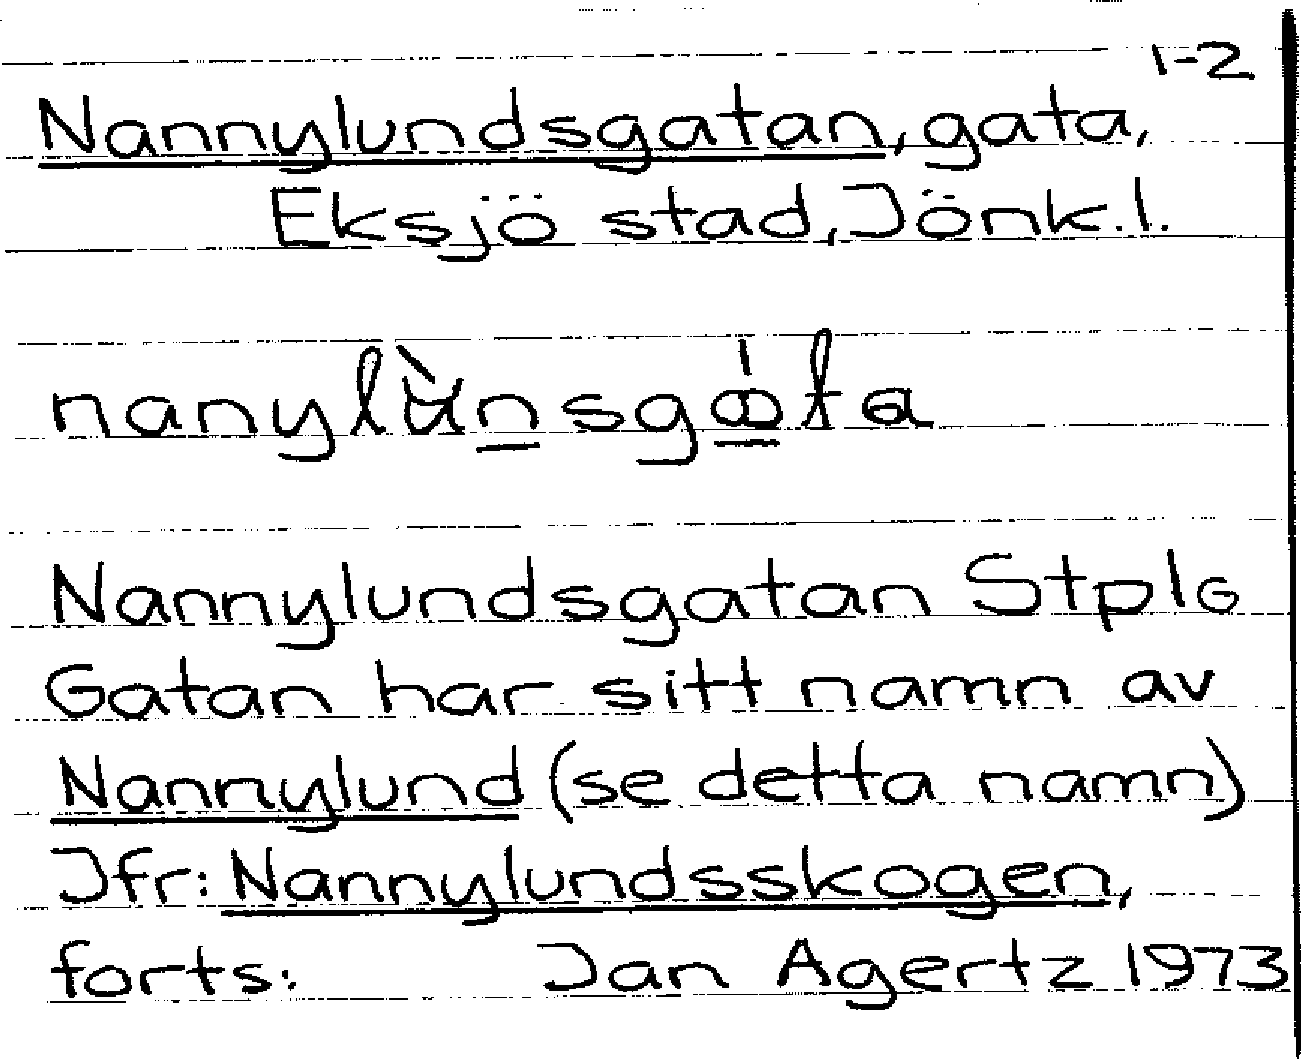 1-2
Nannylundsgatan, gata,
Eksjö stad, Jönk.l.
Nannylundsgatan Stplg
Gatan har sitt namn av
Nannylund (se detta namn)
Jfr: Nannylundsskogen,
forts: Jan Agertz 1973